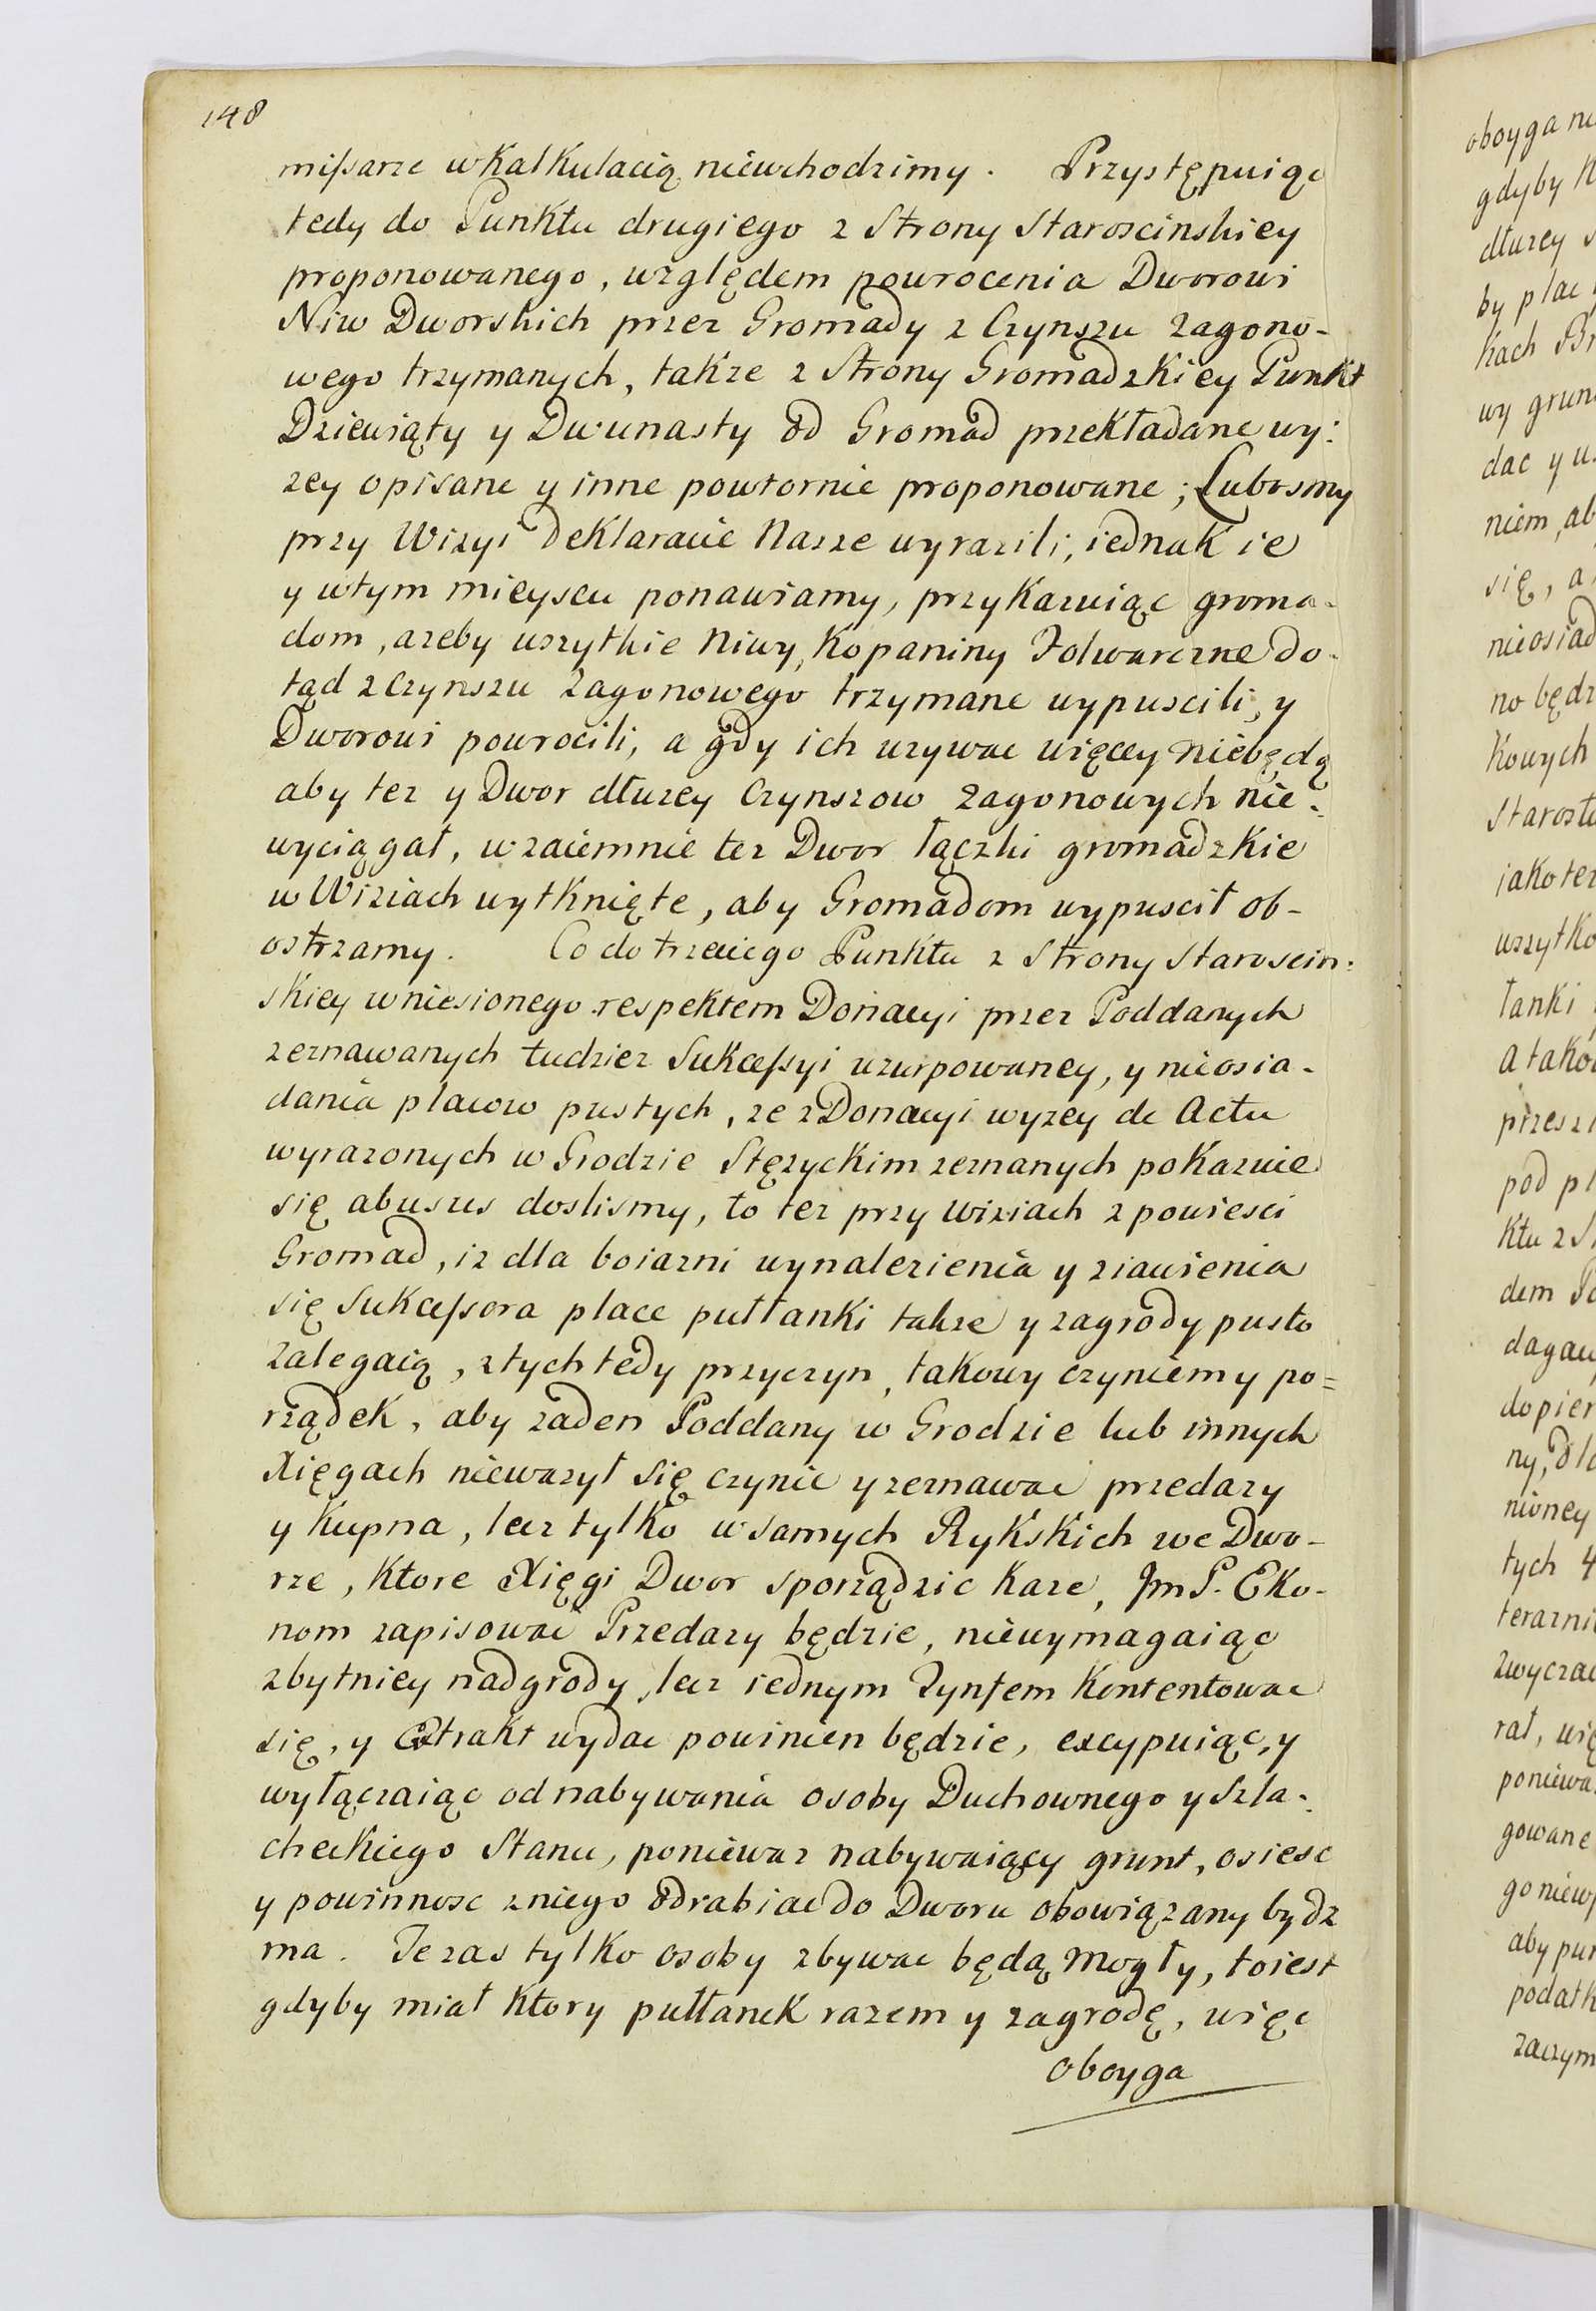 148
missarze w Kalkulacią niewchodzimy. Przystępuiąc
tedy do Punktu drugiego z Strony Staroscinskiey
proponowanego, względem powrocenia Dworowi
Niw Dworskich przez Gromady z Czynszu Zagono-
wego trzymanych, takze z Strony Gromadzkiey Punkt
Dziewiąty y Dwunasty od Gromad przekładane wy:
zey opisane y inne powtornie proponowane; Lubosmy
przy Wizyi deklaracie Nasze wyrazili, iednak ie
y wtym mieyscu ponawiamy, przykazuiąc groma-
dom, azeby wszytkie Niwy, Kopaniny Folwarczne do-
tąd z Czynszu Zagonowego trzymane wypuscili, y
Dworowi powrocili, a gdy ich uzywac więcey niebędą
aby tez y Dwor dłuzey Czynszow Zagonowych nie-
wyciągał, wzaiemnie tez Dwor łączki gromadzkie
w Wiziach wytknięte, aby Gromadom wypuscił ob-
ostrzamy. Co do trzeciego Punktu z Strony Staroscin:
skiey wniesionego respektem Donacyi przez Poddanych
zeznawanych tudziez Sukcessyi uzurpowaney, y nieosia-
dania placow pustych, ze z Donacyi wyzey de Actu
wyrazonych w Grodzie Stęzyckim zeznanych pokazuie
się abusus doslismy, to tez przy Wiziach z powiesci
Gromad, iz dla boiazni wynalezienia y ziawienia
się Sukcessora place pułłanki takze y zagrody pusto
zalegaią, z tych tedy przyczyn, takowy czyniemy po=
rządek, aby zaden Poddany w Grodzie lub innych
Xięgach niewazył się czynic y zeznawac przedazy
y kupna, lecz tylko w samych Rykskich we Dwo-
rze, ktore Xięgi Dwor sporządzic kaze, Jm P. Eko-
nom zapisowac Przedazy będzie, niewymagaiąc
zbytniey nadgrody, lecz iednym Tynfem kontentowac
się, y Extrakt wydac powinien będzie, excypuiąc, y
wyłączaiąc od nabywania osoby Duchownego y Szla-
checkiego Stanu, poniewaz nabywaiący grunt, osiesc
y powinnosc z niego odrabiac do Dworu obowiązany bydz
ma. Te zas tylko osoby zbywac będą mogły, toiest
gdyby miał ktory pułłanek razem y zagrodę, więc
oboyga
oboyga
gdyby
dłuzey
by plac
kach
wy
dac y
niem, ab
się, a
nieosiad
no będz
kowych
Starost
iako tez
wszytko
łanki
a tako
przesz
pod
ktu z
dem
dagau
dopier
ny, dla
nioney
tych
terazni
zwyczac
rał, wię
poniewa
gowane
go niew
aby
podatk
zaczym